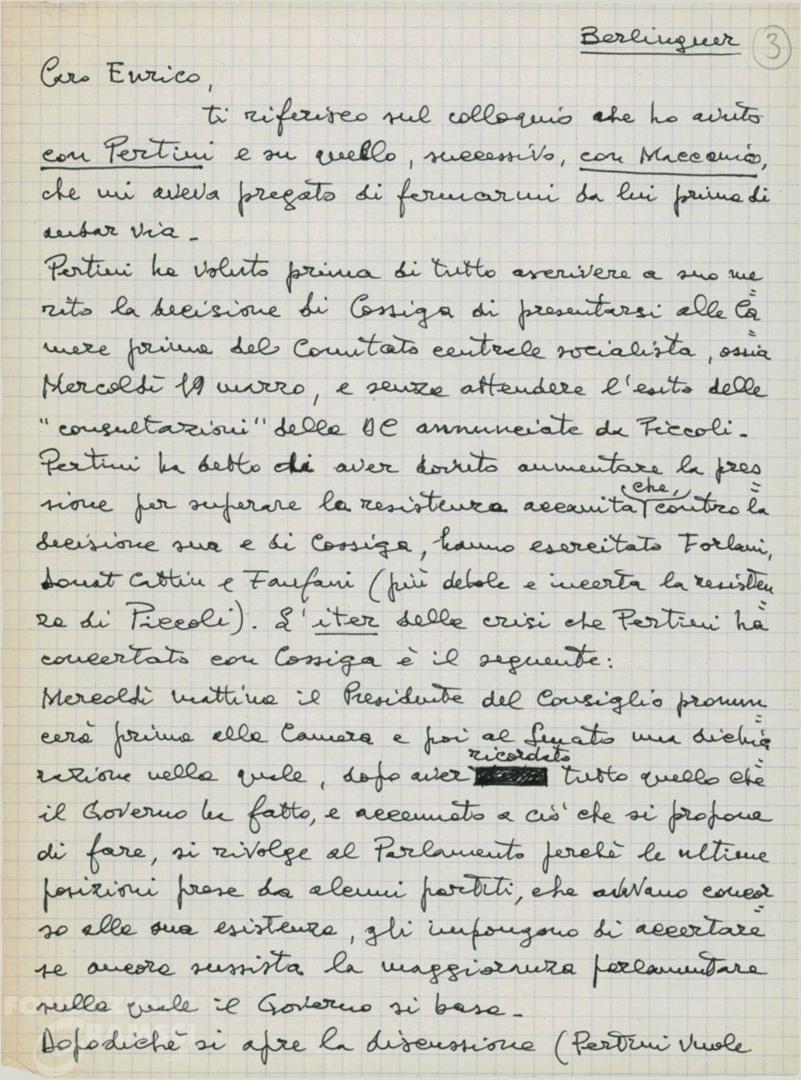 Berlinguer 3
Caro Enrico,
ti riferisco sul colloquio che ho avuto
con Pertini e su quello, successivo, con Maccanico,
che mi aveva pregato di fermarmi da lui prima di
andar via -
Pertini ha voluto prima di tutto ascrivere a suo me=
rito la decisione di Cossiga di presentarsi alle Ca=
mere prima del Comitato centrale socialista, ossia
Mercoldì 19 marzo, e senza attendere l'esito delle
"consultazioni" della DC annunciate da Piccoli -
Pertini ha detto di aver dovuto aumentare la pres=
sione per superare la resistenza accanita che, contro la
decisione sua e di Cossiga, hanno esercitato Forlani,
Donat Cattin e Fanfani (più debole e incerta la resisten=
za di Piccoli). L'iter della crisi che Pertini ha
concertato con Cossiga è il seguente:
Mercoldì mattina il Presidente del Consiglio pronun=
cerà prima alla Camera e poi al Senato una dichia=
razione nella quale, dopo aver ricordato tutto quello che
il Governo ha fatto, e accennato a ciò che si propone
di fare, si rivolge al Parlamento perchè le ultime
posizioni prese da alcuni partiti, che avevano concor=
so alla sua esistenza, gli impongono di accertare
se ancora sussista la maggioranza parlamentare
sulla quale il Governo si basa -
Dopodichè si apre la discussione (Pertini vuole